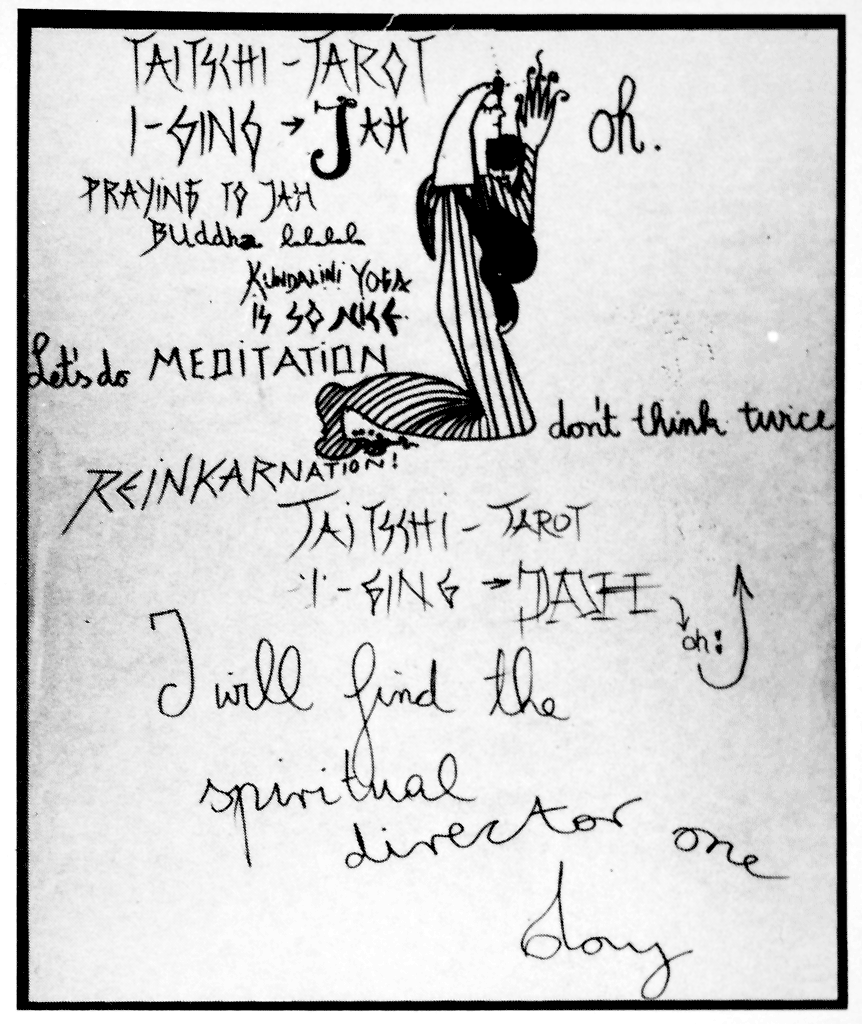 TAITSCHI - TAROT
I - GING → JAH
oh.
PRAYING TO JAH
Buddha lalalala
KUNDALINI YOGA
IS SO NICE
Let's do MEDITATION
don't think twice
REINKARNATION!
TAITSCHI - TAROT
I - GING → JAH
oh!
I will find the
spiritual
director one
day